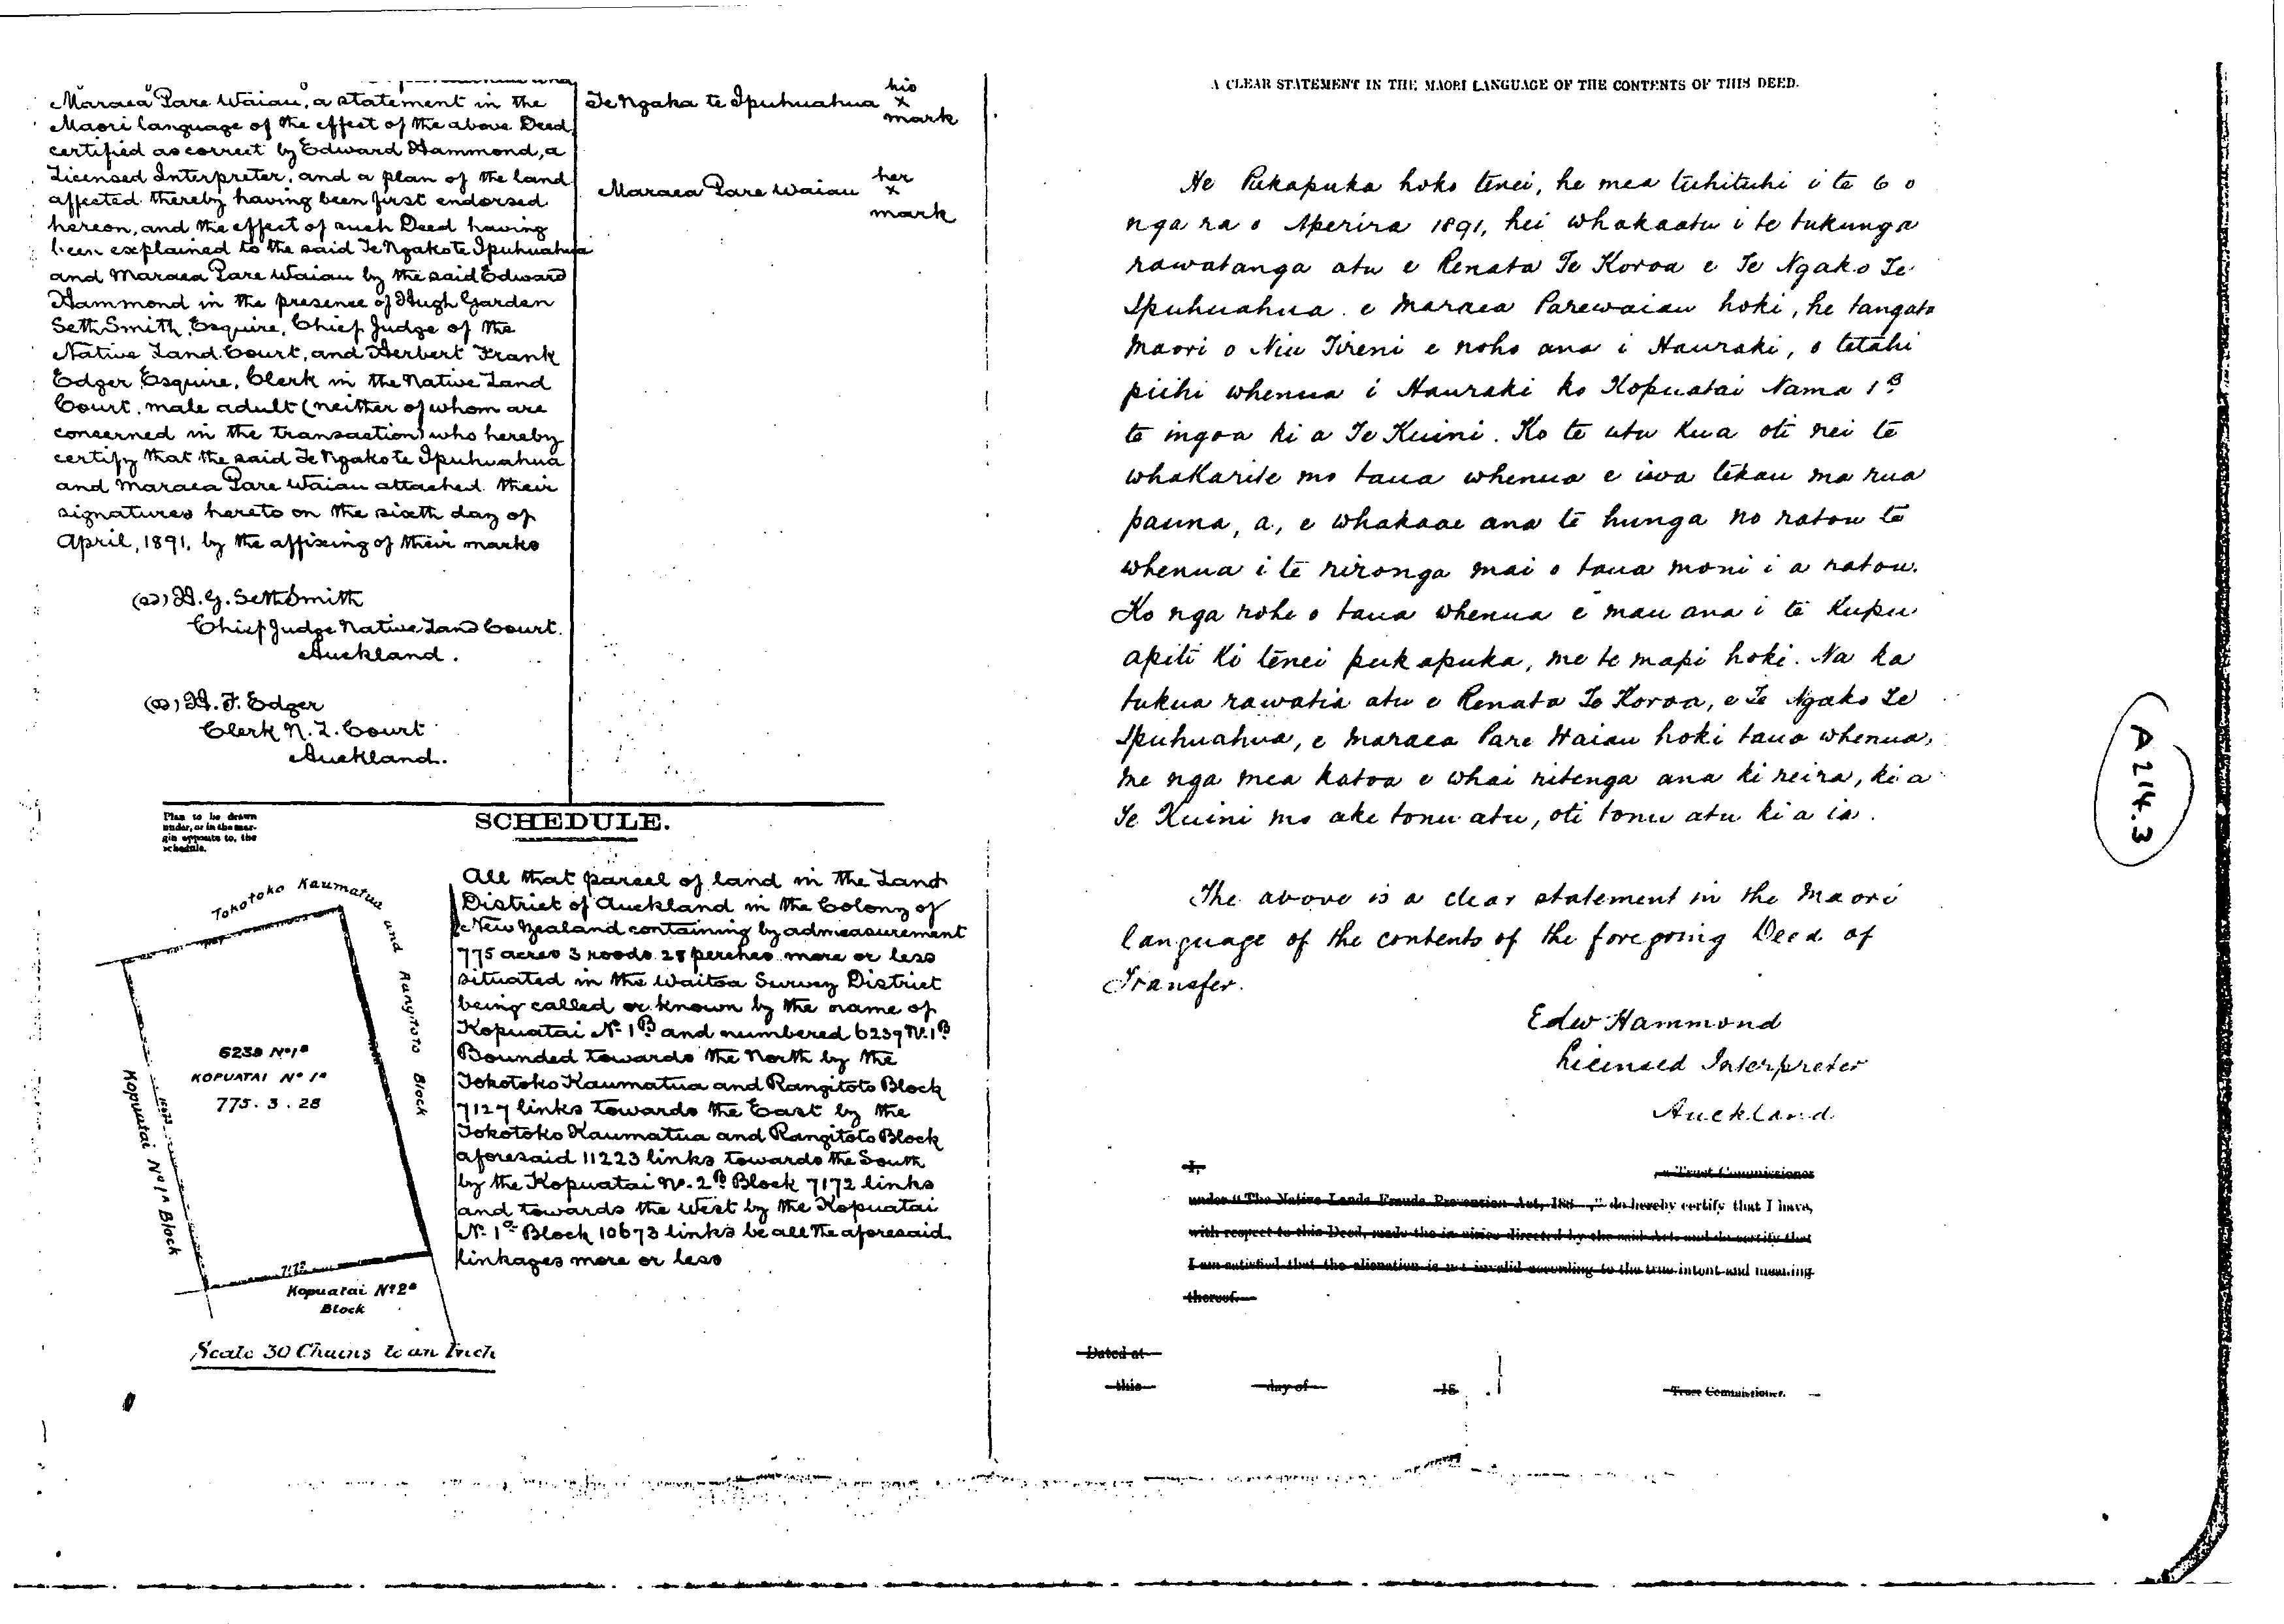 Maraea Pare Waiau, a statement in the
Maori language of the effect of the above Deed,
certified as correct by Edward Hammond, a
Licensed Interpreter, and a plan of the land
affected thereby having been first endorsed
hereon, and the effect of such Deed having
been explained to the said Te Ngako te Ipuhuahua
and Maraea Pare Waiau by the said Edward
Hammond in the presence of Hugh Garden
Seth Smith, Esquire, Chief Judge of the
Native Land Court, and Herbert Frank
Edger Esquire, Clerk in the Native Land
Court, male adult (neither of whom are
concerned in the transaction) who hereby
certify that the said Te Ngako te Ipuhuahua
and Maraea Pare Waiau attached their
signatures hereto on the sixth day of
April, 1891, by the affixing of their marks
(sd) H. G. Seth Smith
Chief Judge Native Land Court.
Auckland.
(sd) H. F. Edger
Clerk N. L. Court
Auckland.
his
Te Ngaka te Ipuhuahua x
mark
her
Maraea Pare Waiau x
mark
SCHEDULE.
Plan to be drawn
under, or in the mar-
gin opposite to, the
schedule.
Tokotoko Kaumatua and Rangitoto Block
6239 No 1B
KOPUATAI No 1B
775 . 3 . 28
Kopuatai No 1A Block
10673
7172
Kopuatai No 2B
Block
Scale 30 Chains to an Inch
All that parcel of land in the Land
District of Auckland in the Colony of
New Zealand containing by admeasurement
775 acres 3 roods 28 perches more or less
situated in the Waitoa Survey District
being called or known by the name of
Kopuatai No 1B and numbered 6239 No. 1B
Bounded towards the North by the
Tokotoko Kaumatua and Rangitoto Block
7127 links towards the East by the
Tokotoko Kaumatua and Rangitoto Block
aforesaid 11223 links towards the South
by the Kopuatai No. 2B Block 7172 links
and towards the West by the Kopuatai
No 1a Block 10673 links be all the aforesaid
linkages more or less
A CLEAR STATEMENT IN THE MAORI LANGUAGE OF THE CONTENTS OF THIS DEED.
He Pukapuka hoko tenei, he mea tuhituhi i te 6 o
nga ra o Aperira 1891, hei whakaatu i te tukunga
rawatanga atu e Renata Te Koroa e Te Ngako Te
Ipuhuahua. e Maraea Parewaiau hoki, he tangata
Maori o Niu Tireni e noho ana i Hauraki, o tetahi
piihi whenua i Hauraki ko Kopuatai Nama 1B
te ingoa ki a Te Kuini. Ko te utu kua oti nei te
whakarite mo taua whenua e iwa tekau ma rua
pauna, a, e whakaae ana te hunga no ratou te
whenua i te rironga mai o taua moni i a ratou.
Ko nga rohe o taua whenua e mau ana i te kupu
apiti ki tenei pukapuka, me te mapi hoki. Na ka
tukua rawatia atu e Renata Te Koroa, e Te Ngako Te
Ipuhuahua, e Maraea Pare Waiau hoki taua whenua,
me nga mea katoa e whai ritenga ana ki reira, ki a
Te Kuini mo ake tonu atu, oti tonu atu ki a ia.
The above is a clear statement in the Maori
language of the contents of the foregoing Deed of
Transfer.
Edw Hammond
Licensed Interpreter
Auckland
I,
a Trust Commissioner
under "The Native Lands Frauds Prevention Act, 188 ," do hereby certify that I have,
with respect to this Deed, made the inquiries directed by the said Acts and do certify that
I am satisfied that the alienation is not invalid according to the true intent and meaning
thereof.
Dated at
this day of 18 .
Trust Commissioner.
A 214.3